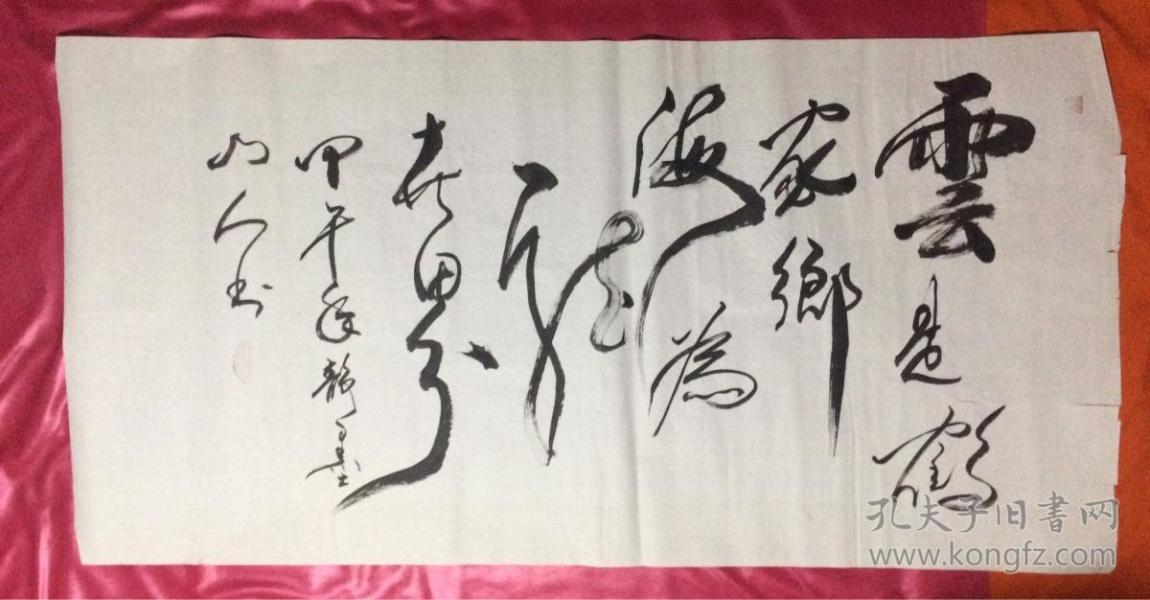 雲是鶴
家鄉
海為
龍
世界
甲午年静墨
山人书
孔夫子旧書网
www.kongfz.com